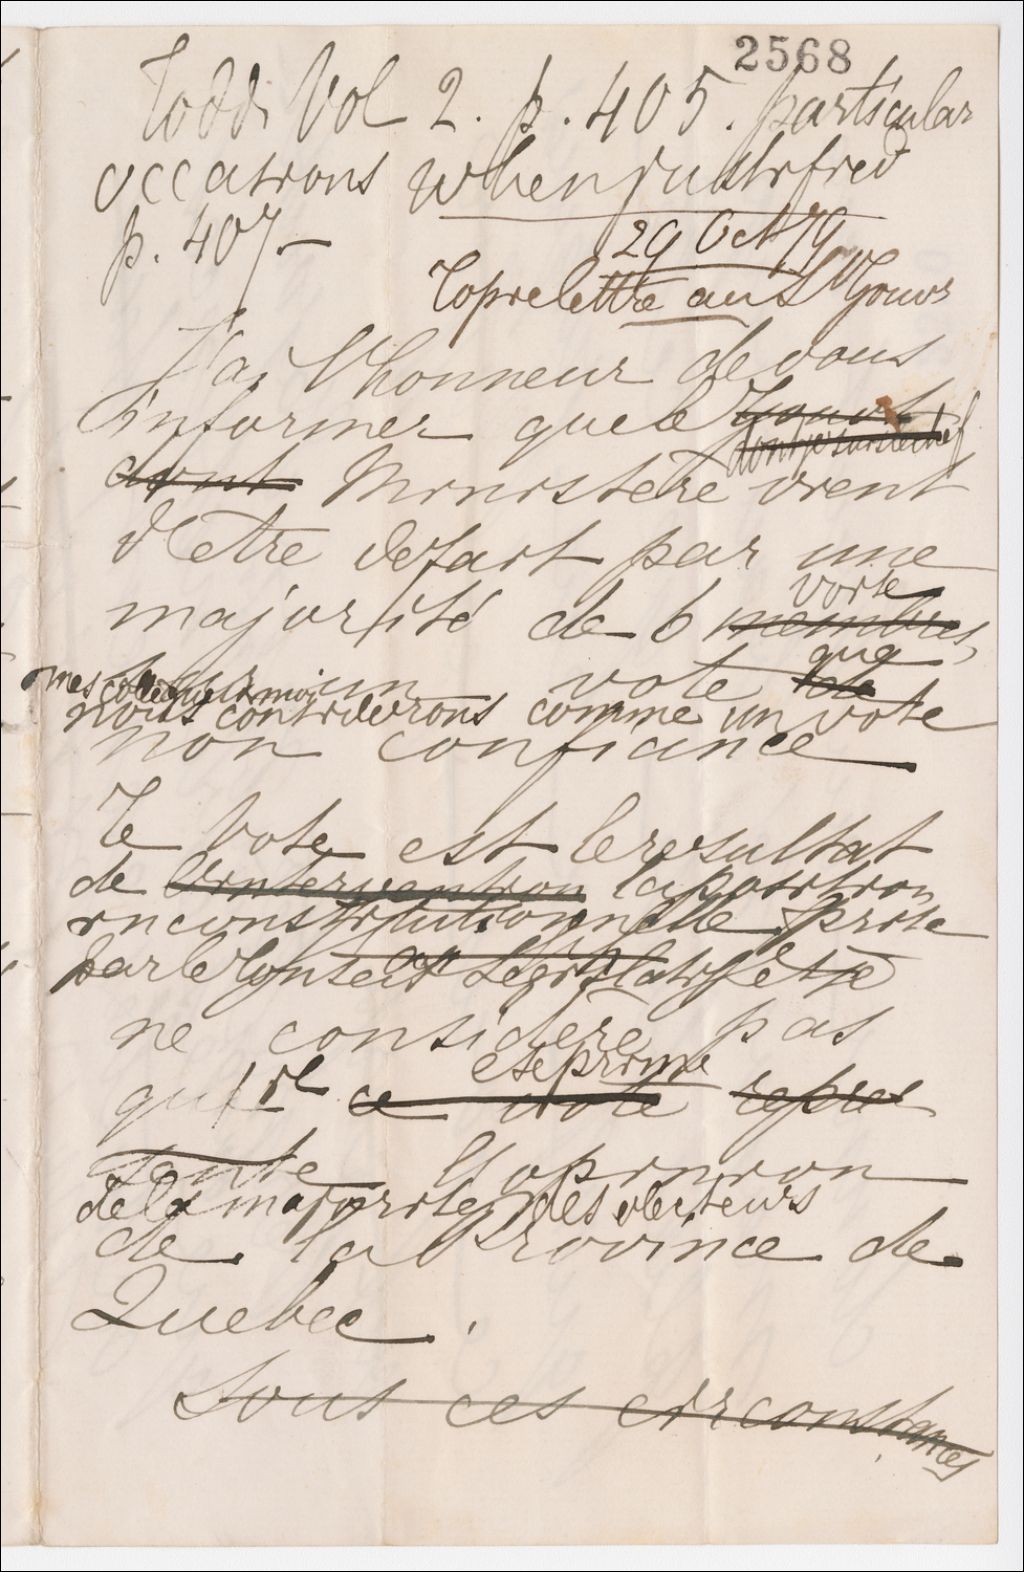 2568
Todd. Vol 2. p. 405. particular
occasions when justified
p. 407 —
29 Oct 79
Copie lettre au Lt Gouvr
J'ai l'honneur de vous
informer que le Gouvt
dont je suis le chef
dont Ministère vient
d'être défait par une
voix
majorité de 6 membres,
sur un vote de
que
mes collegues & moi
nous considerons comme un vote
non confiance
Ce vote est le resultat
de l'intervention la position
inconstitutionnelle prise
par le Conseil Législatif et je
ne considère pas
exprime
qu'il ce vote repre
sente l'opinion
de la majorité des electeurs
de la Province de
Quebec.
Sous ces circonstances